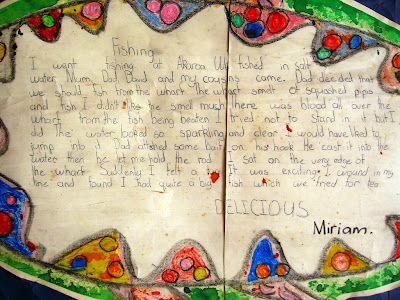 Fishing
I went fishing at Akaroa. We fished in salt
water. Mum, Dad, David and my cousins came. Dad decided that
we should fish from the wharf. The wharf smelt of squashed pips
and fish I didn't like the smell much there was blood all over the
wharf from the fish being beaten I tried not to stand in it but I
did the water looked so sparkling and clear I would have liked to
jump into it Dad attached some bait on his hook He cast it into the
water then he let me hold the rod I sat on the very edge of
the wharf Suddenly I felt a It was exciting I wound in my
line and found I had quite a big fish which we fried for tea
DELICIOUS
Miriam.